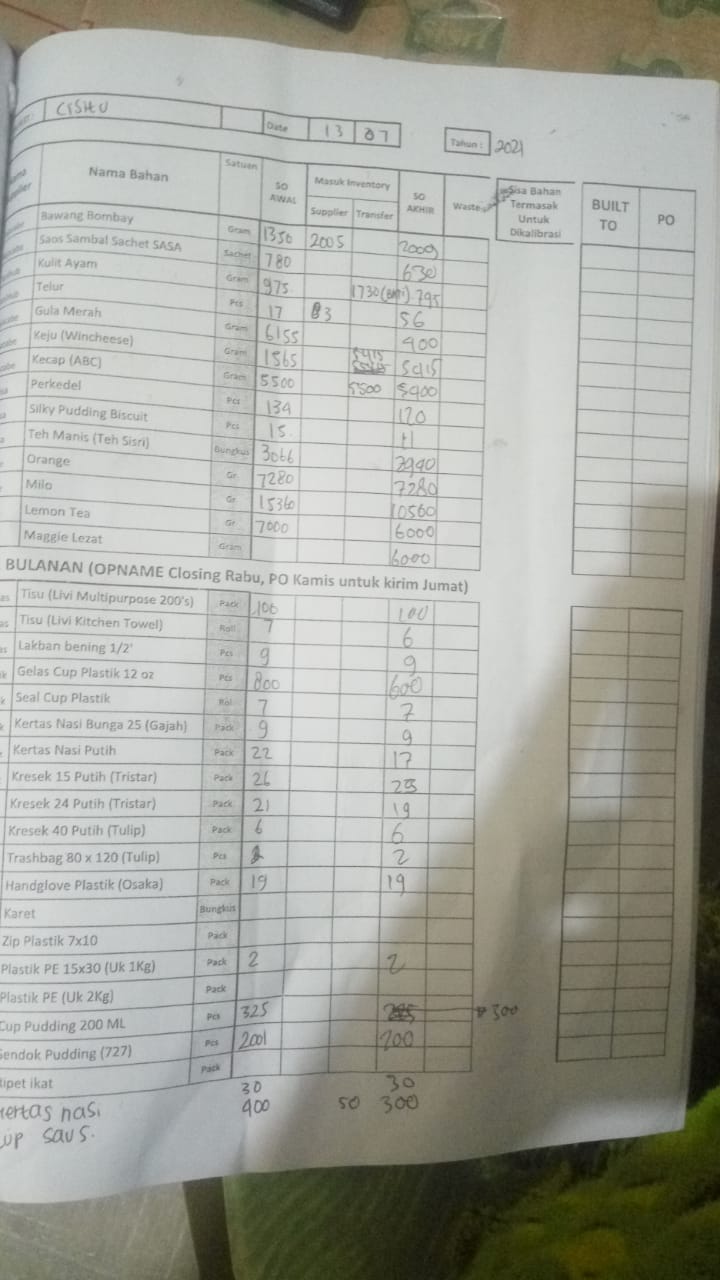 CISHU Date 13 07 Tahun : 2021
Nama Bahan Satuan SO AWAL Masuk Inventory Supplier Transfer SO AKHIR Waste Sisa Bahan Termasak Untuk Dikalibrasi BUILT TO PO
Bawang Bombay Gram 1350 2005 2009
Saos Sambal Sachet SASA Sachet 780 630
Kulit Ayam Gram 975 1730 795
Telur Pcs 17 83 56
Gula Merah Gram 6155 400
Keju (Wincheese) Gram 1565 5415 5415
Kecap (ABC) Gram 5500 5500 5400
Perkedel Pcs 134 120
Silky Pudding Biscuit Pcs 15 11
Teh Manis (Teh Sisri) Bungkus 3066 2990
Orange Gr 7280 7280
Milo Gr 15360 10560
Lemon Tea Gr 7000 6000
Maggie Lezat Gram 6000
BULANAN (OPNAME Closing Rabu, PO Kamis untuk kirim Jumat)
Tisu (Livi Multipurpose 200's) Pack 100 100
Tisu (Livi Kitchen Towel) Roll 7 6
Lakban bening 1/2' Pcs 9 9
Gelas Cup Plastik 12 oz Pcs 800 600
Seal Cup Plastik Rol 7 7
Kertas Nasi Bunga 25 (Gajah) Pack 9 9
Kertas Nasi Putih Pack 22 17
Kresek 15 Putih (Tristar) Pack 26 25
Kresek 24 Putih (Tristar) Pack 21 19
Kresek 40 Putih (Tulip) Pack 6 6
Trashbag 80 x 120 (Tulip) Pcs 2 2
Handglove Plastik (Osaka) Pack 19 19
Karet Bungkus
Zip Plastik 7x10 Pack
Plastik PE 15x30 (Uk 1Kg) Pack 2 2
Plastik PE (Uk 2Kg) Pack
Cup Pudding 200 ML Pcs 325 300
Sendok Pudding (727) Pcs 200 200
Ripet ikat Pack
kertas nasi 30 30
cup saus. 400 50 300